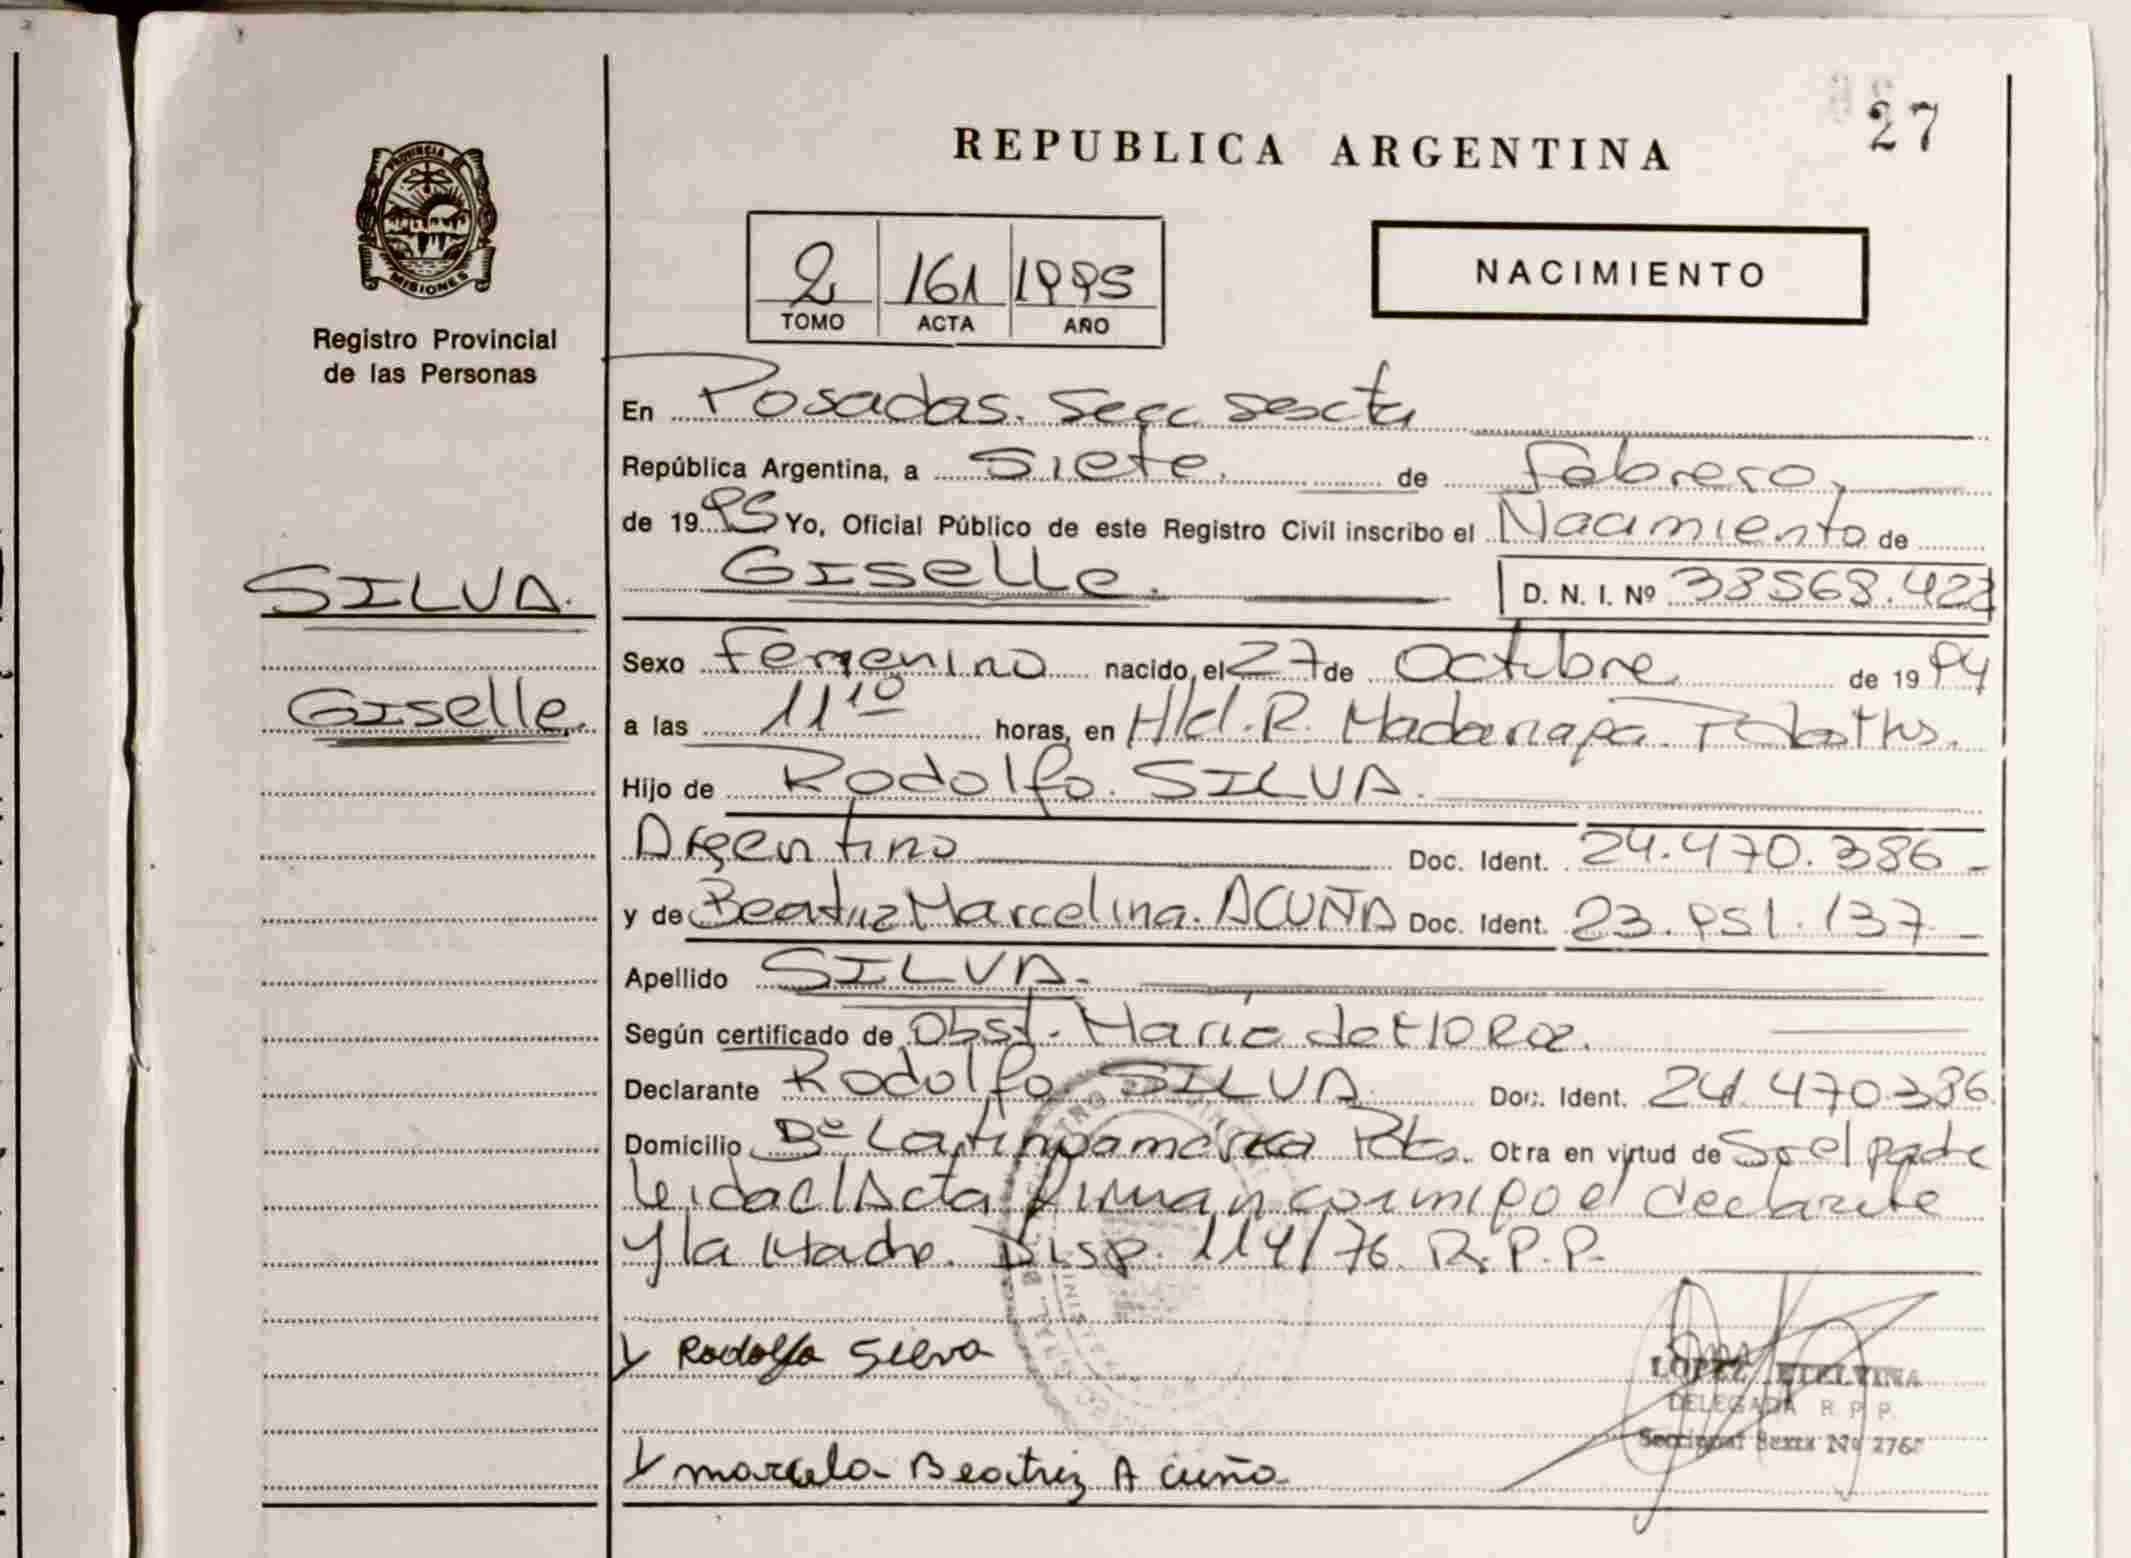 27
REPUBLICA ARGENTINA
PROVINCIA DE
MISIONES
Registro Provincial
de las Personas
2 161 1995
TOMO ACTA AÑO
NACIMIENTO
En Posadas. Secc sexta
República Argentina, a Siete. de Febrero,
de 1995 Yo, Oficial Público de este Registro Civil inscribo el Nacimiento de
SILVA.
Giselle. D. N. I. Nº 38568.422
Sexo Femenino nacido, el 27 de Octubre de 1994
Giselle.
a las 11 10 horas, en Hld. R. Madariaga
Hijo de Rodolfo. SILVA.
Argentino Doc. Ident. 24.470.386
y de Beatriz Marcelina. ACUÑA Doc. Ident. 23.951.137
Apellido SILVA.
Según certificado de Obst. Maria
Declarante Rodolfo SILVA. Doc. Ident. 24.470.386
Domicilio Bº Latinoamerica Otra en virtud de el padre
leida el Acta firman conmigo el declarante
y la Madre. Disp. 114/76. R.P.P.
Rodolfo Silva
LOPEZ ETELVINA
DELEGADA R. P. P.
Seccional Sexta Nº 276
Marcela Beatriz Acuña